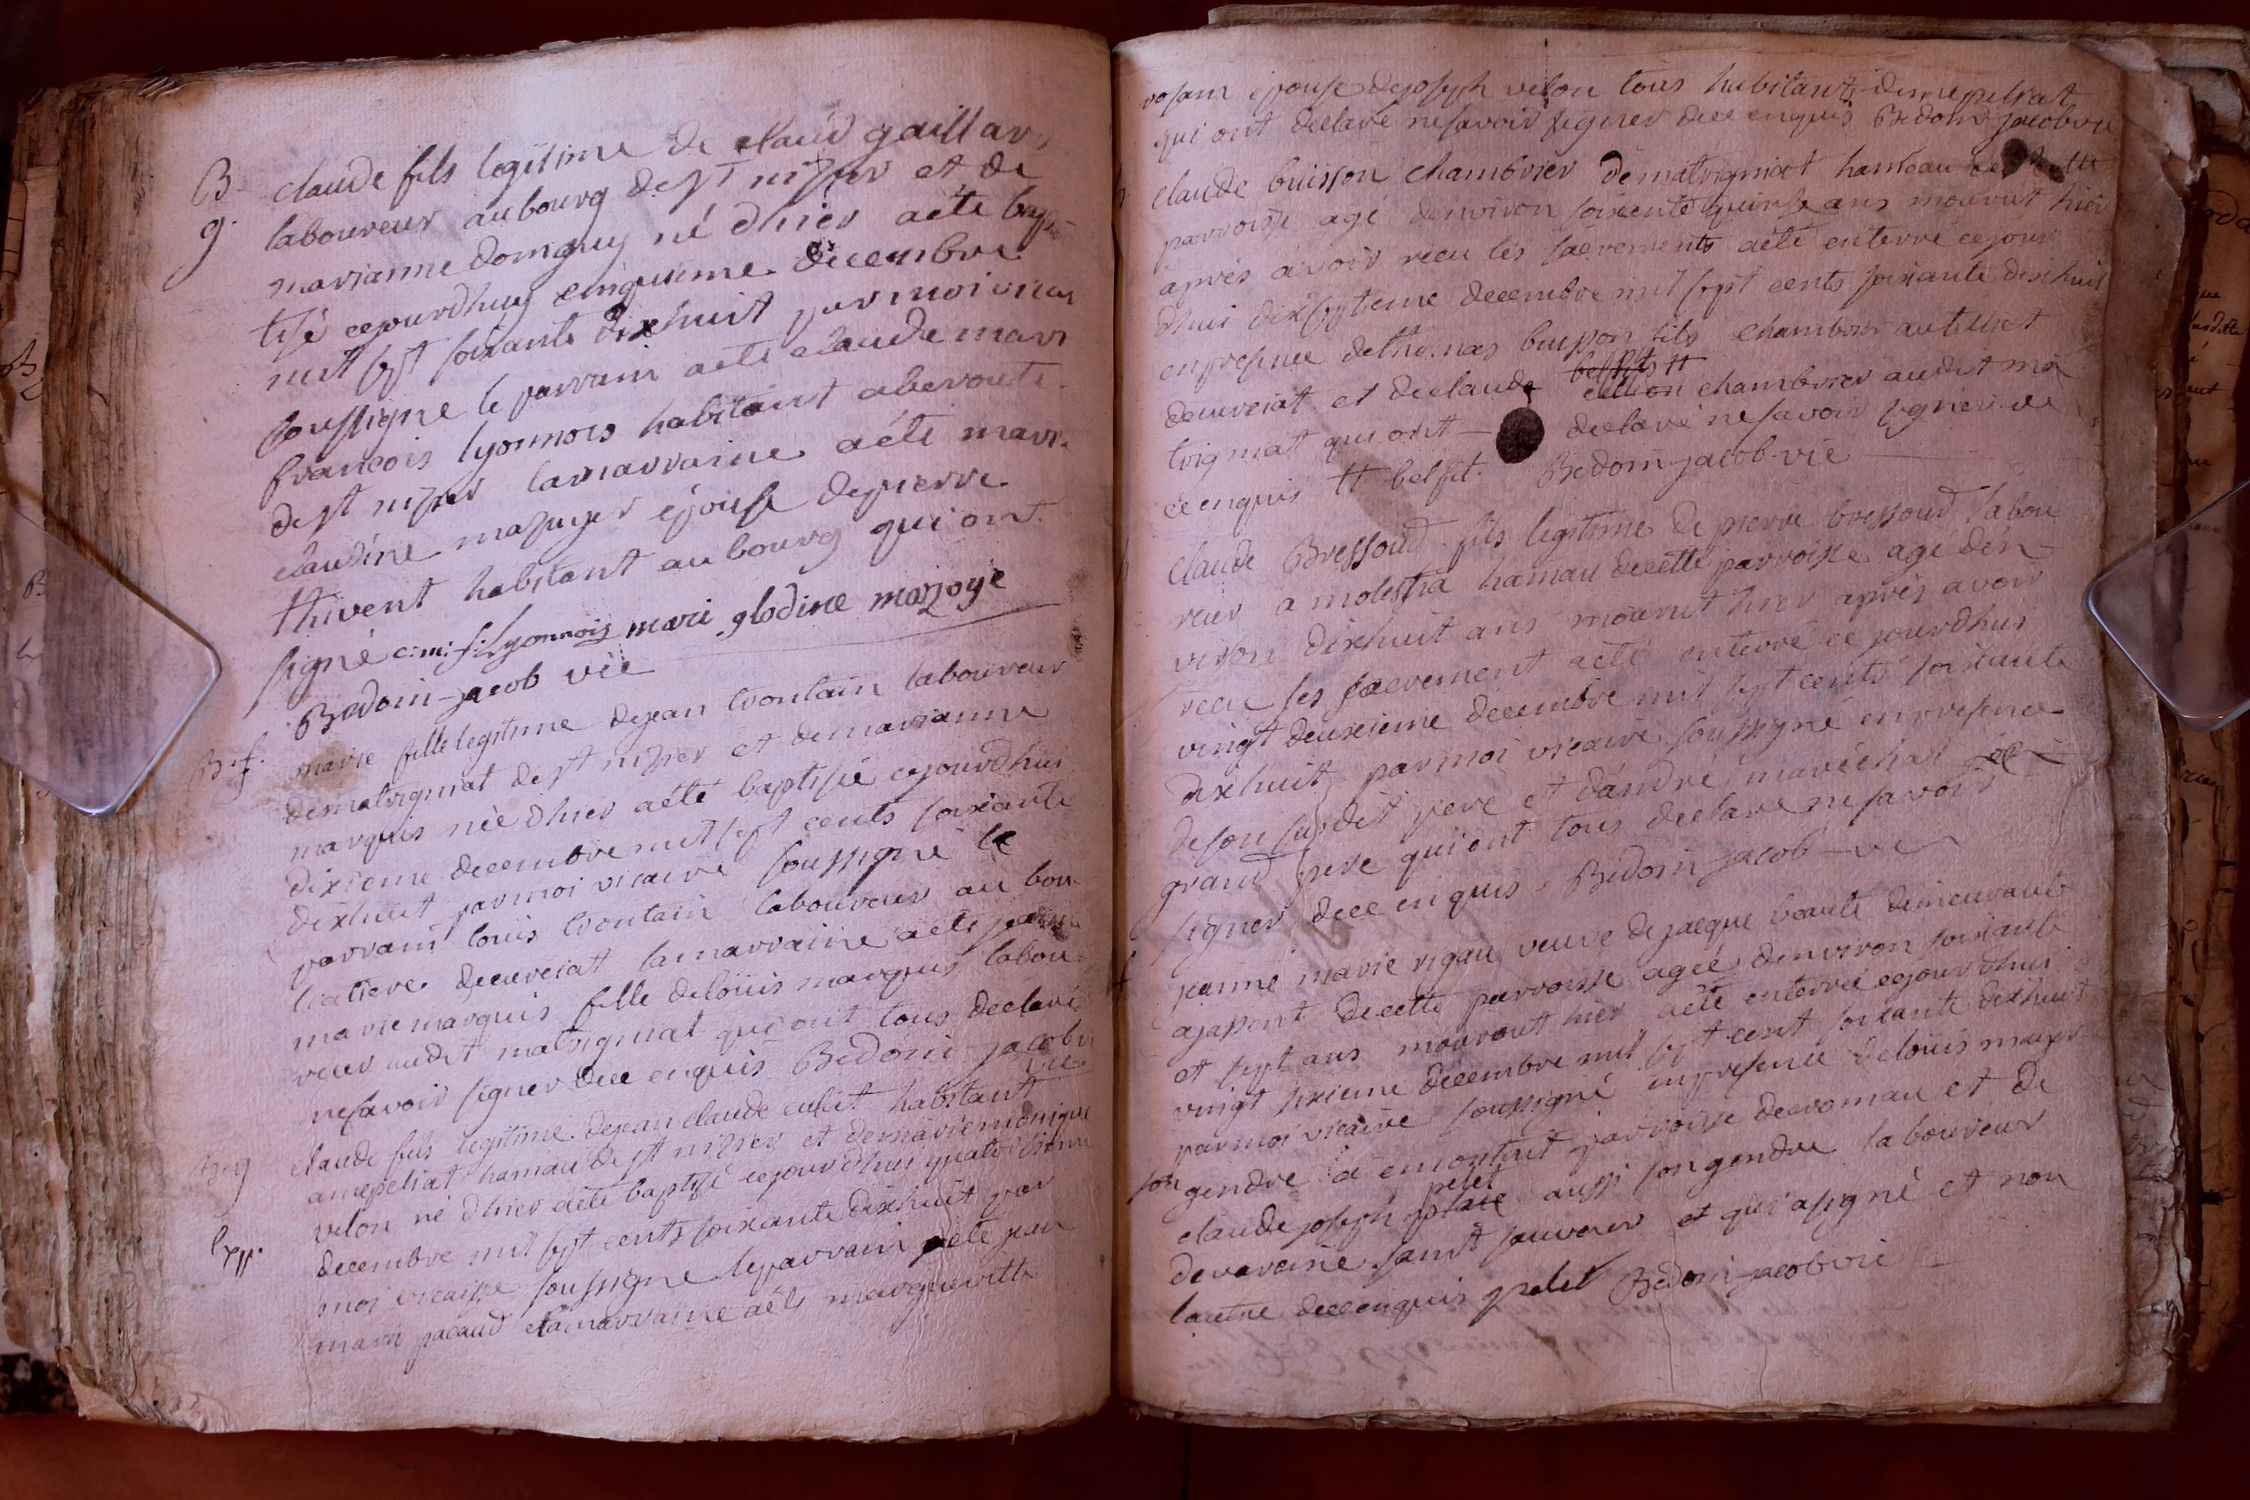 B. claude fils legitime de claud gaillard
g. laboureur au bourg de st nizier et de
marianne domguy né d'hier aété bap
tisé cejourdhuy cinquième decembre
mil sept soixante dixhuit par moi vicair
soussigné le parrain aété claude mari
francois lyonnois habitant
de st nizier la marraine aété mari
claudine mazuyer épouse de pierre
thivent habitant au bourg qui ont
signé c: m: f: Lyonnois mari glodine mazoye
Bedoin-jacob vie
B. f. marie fille legitime dejean trontain laboureur
dematrigniat de st nizier et de marianne
marquis née d'hier aété baptisée cejourdhui
dixieme decembre mil sept cents soixante
dixhuit par moi vicaire soussigné le
parrain louis trontain laboureur au bou
decuveiat lamarraine aété jeanne
marie marquis fille delouis marquis labou
reur audit matrigniat qui ont tous declaré
nesavoir signer dece enquis Bedoin jacob vi
vie
g claude fils legitime dejean claude cusit habitant
amepeliat hamau de st nizier et demarie monique
velon né d'hier aété baptisé cejourdhui quatorzieme
decembre mil sept cents soixante dixhuit par
moi vicaire soussigné leparrain aété jean
marie pacaud et lamarraine aété margueritte
épouse dejoseph velon tous habitants demepeliat
qui ont déclaré nesavoir signer dece enquis Bedoin jacob vie
claude buisson chambrier dematrigniat hameau de cette
parroisse agé denviron soixente quinze ans mourut hier
après avoir recu les sacrements aété enterré cejour
dhui dix septieme decembre mil sept cents soixante dixhuit
enpresence dethomas buisson fils chambrier au
decuveiat et declaude chambrier audit ma
belfit tt
trigniat qui ont declaré nesavoir signer de
ce enquis tt belfit. Bedoin-jacob-vie
claude Bressoud fils legitime de pierre bressoud labou
reur a molestia hamau decette parroisse agé den
viron dixhuit ans mourut hier après avoir
recu les sacrement aété enterré ce jourdhui
vingt deuxieme decembre mil sept cents soixante
dixhuit par moi vicaire soussigné en presence
de son susdit pere et d'andré maréchal
grand pere qui ont tous declaré ne savoir
signer dece enquis Bedoin jacob-vie
jeanne marie rigau veuve de jacque beaute demeurant
decette parroisse agée denviron soixante
et sept ans mourut hier aété enterrée cejourdhui
vingt sixieme decembre mil sept cent soixante dixhuit
parmoi vicaire soussigné en presence delouis
son gendre parroisse decroman et de
claude joseph petit aussi son gendre laboureur
devaraine saint sauveur et qui a signé et non
lautre dece enquis petit Bedoin-jacob vie